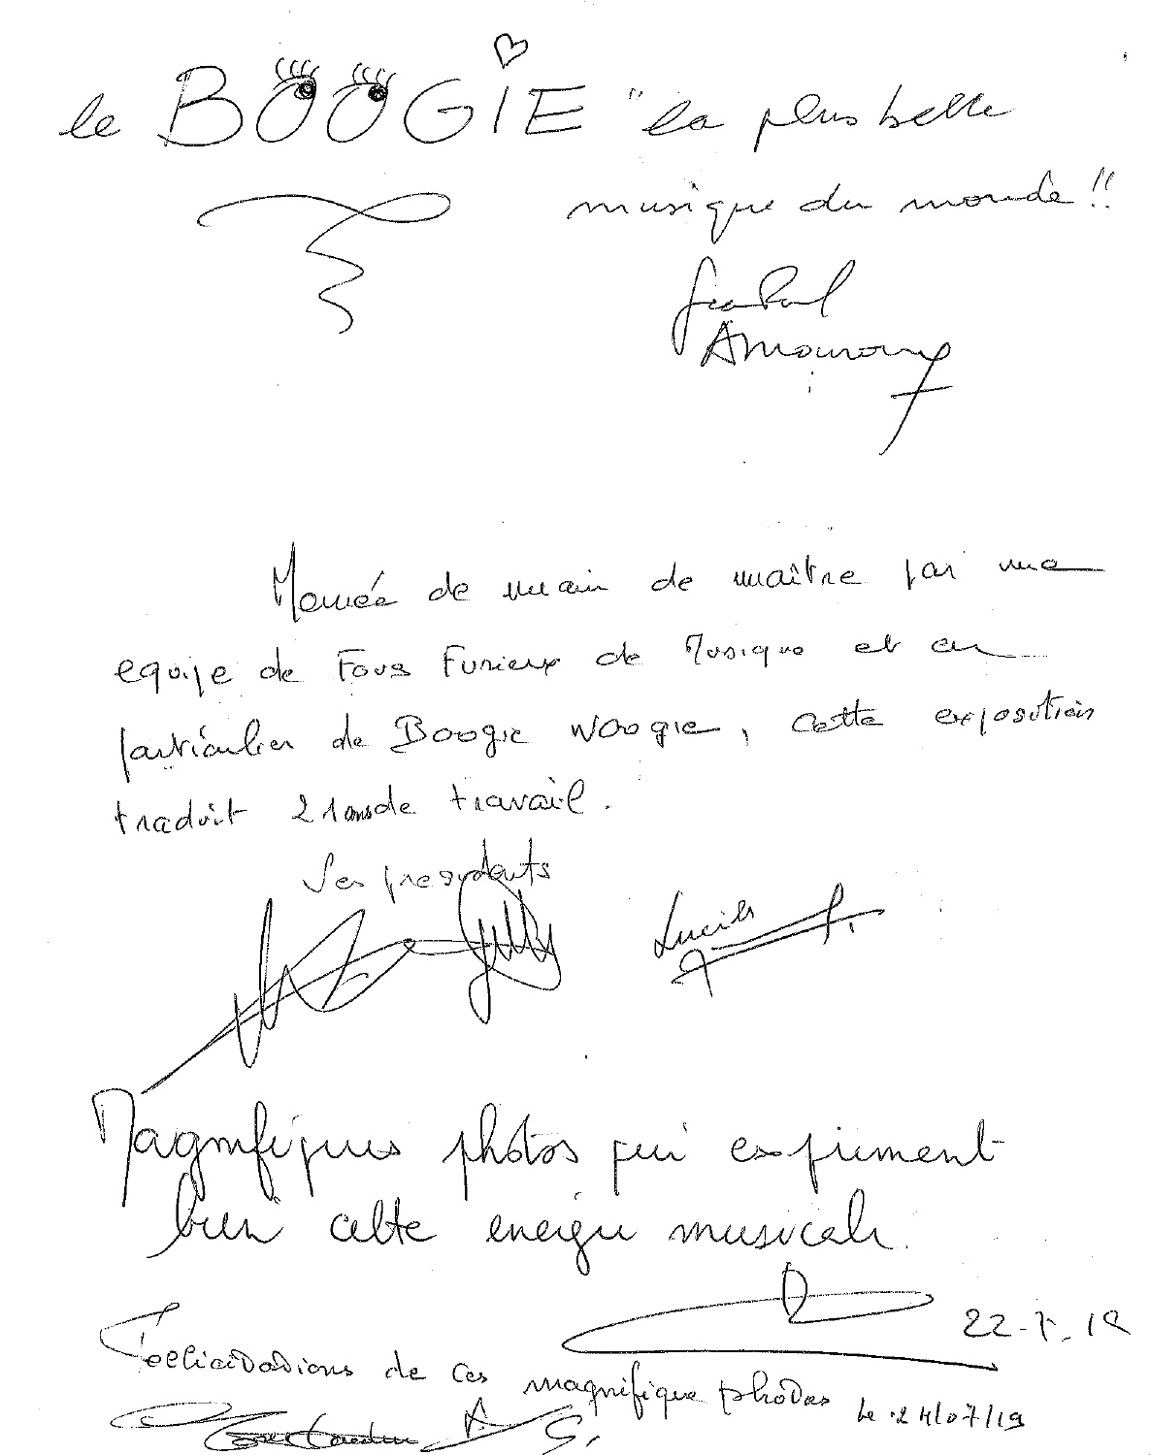 le BOOGIE "la plus belle
musique du monde !!
Jean Paul
Amouroux
Menée de main de maître par une
equipe de Fous Furieux de Musique et en
particulier de Boogie Woogie, cette exposition
traduit 21 ans de travail.
Ses presidents
Lucile
Magnifiques photos qui expriment
bien cette energie musicale.
22-7-19
Felicidadions de ces magnifique photos le 24/07/19